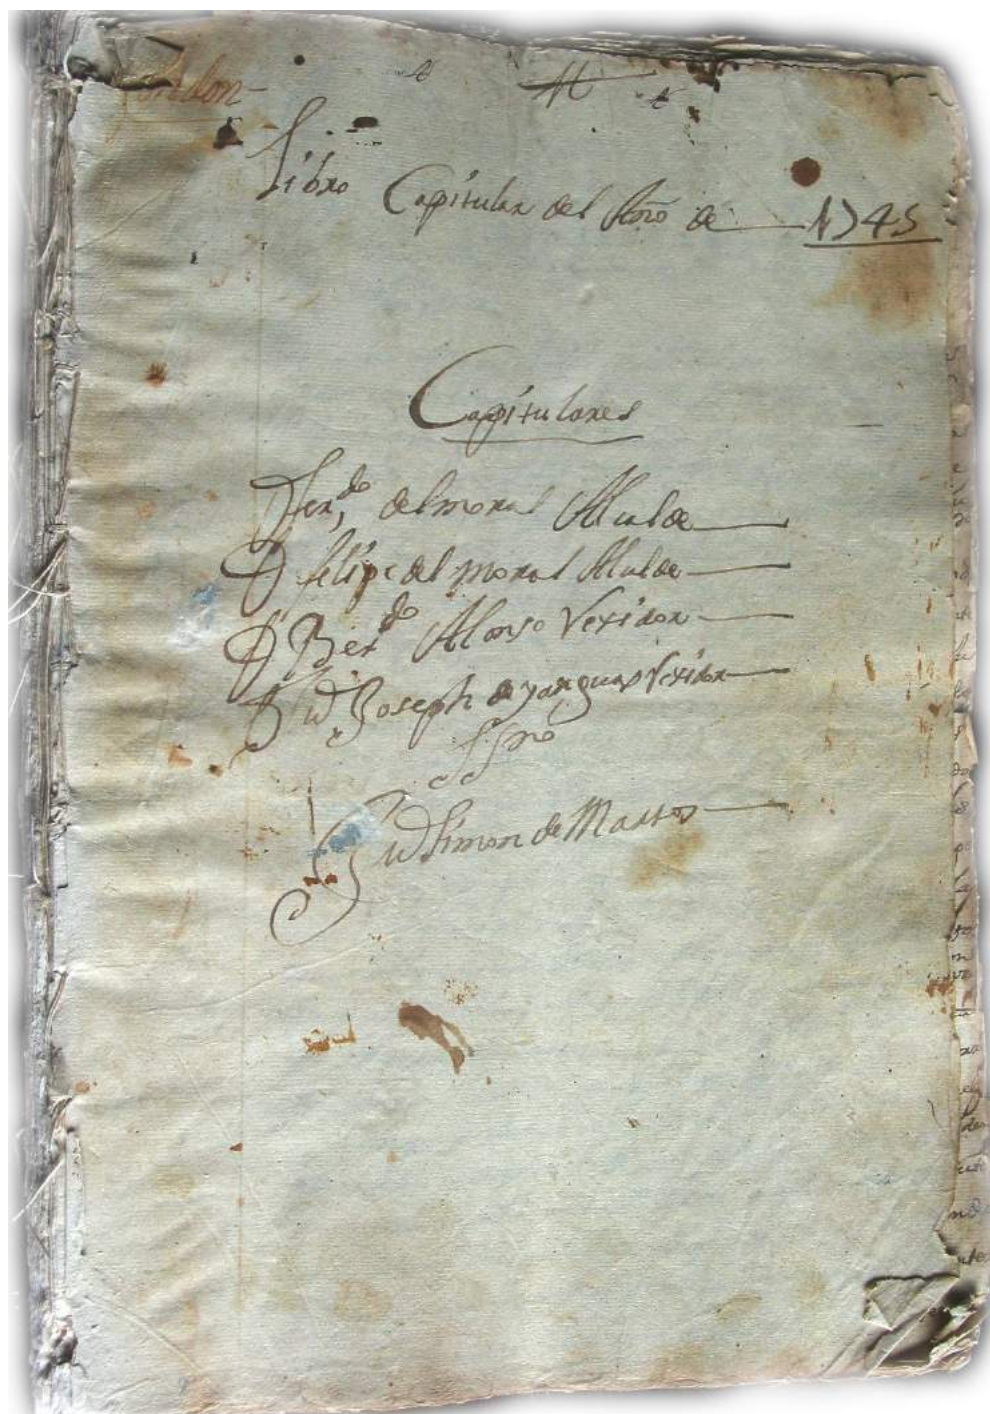 Libro Capitular del Año de 1745
Capitulares
D Fer,do del moral Alcalde
D felipe del moral Alcalde
D Berdo Alonso Rexidor
D Joseph de yanguas Rexidor
SSno
Simon de Martos